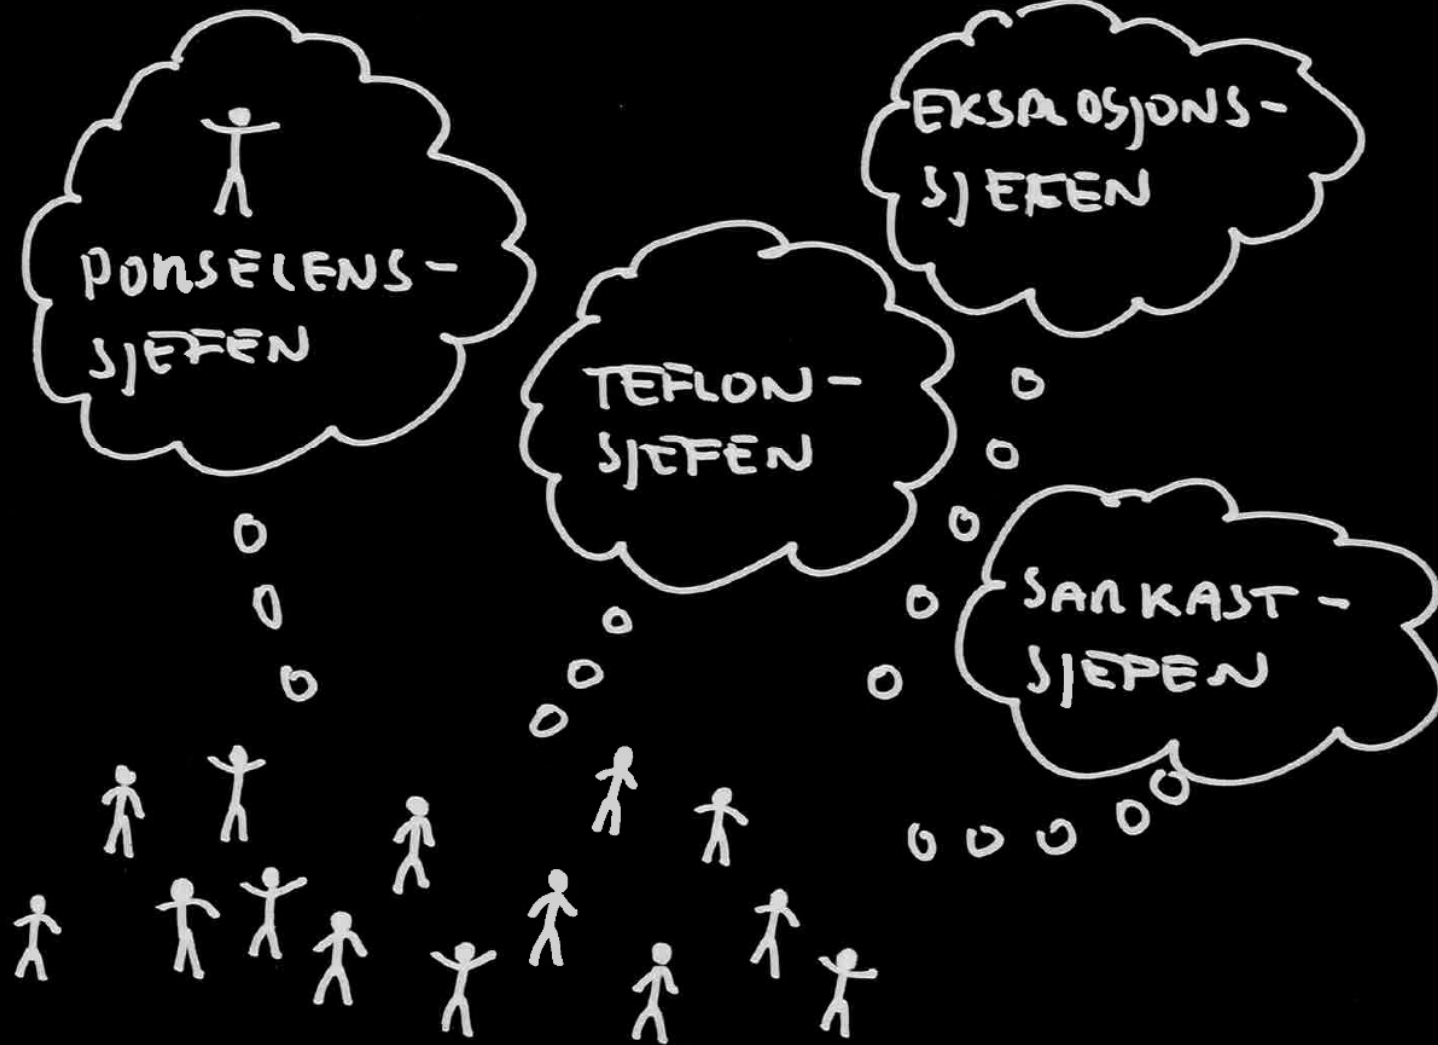 PORSELENS-
SJEFEN
TEFLON-
SJEFEN
EKSPLOSJONS-
SJEFEN
SARKAST-
SJEFEN